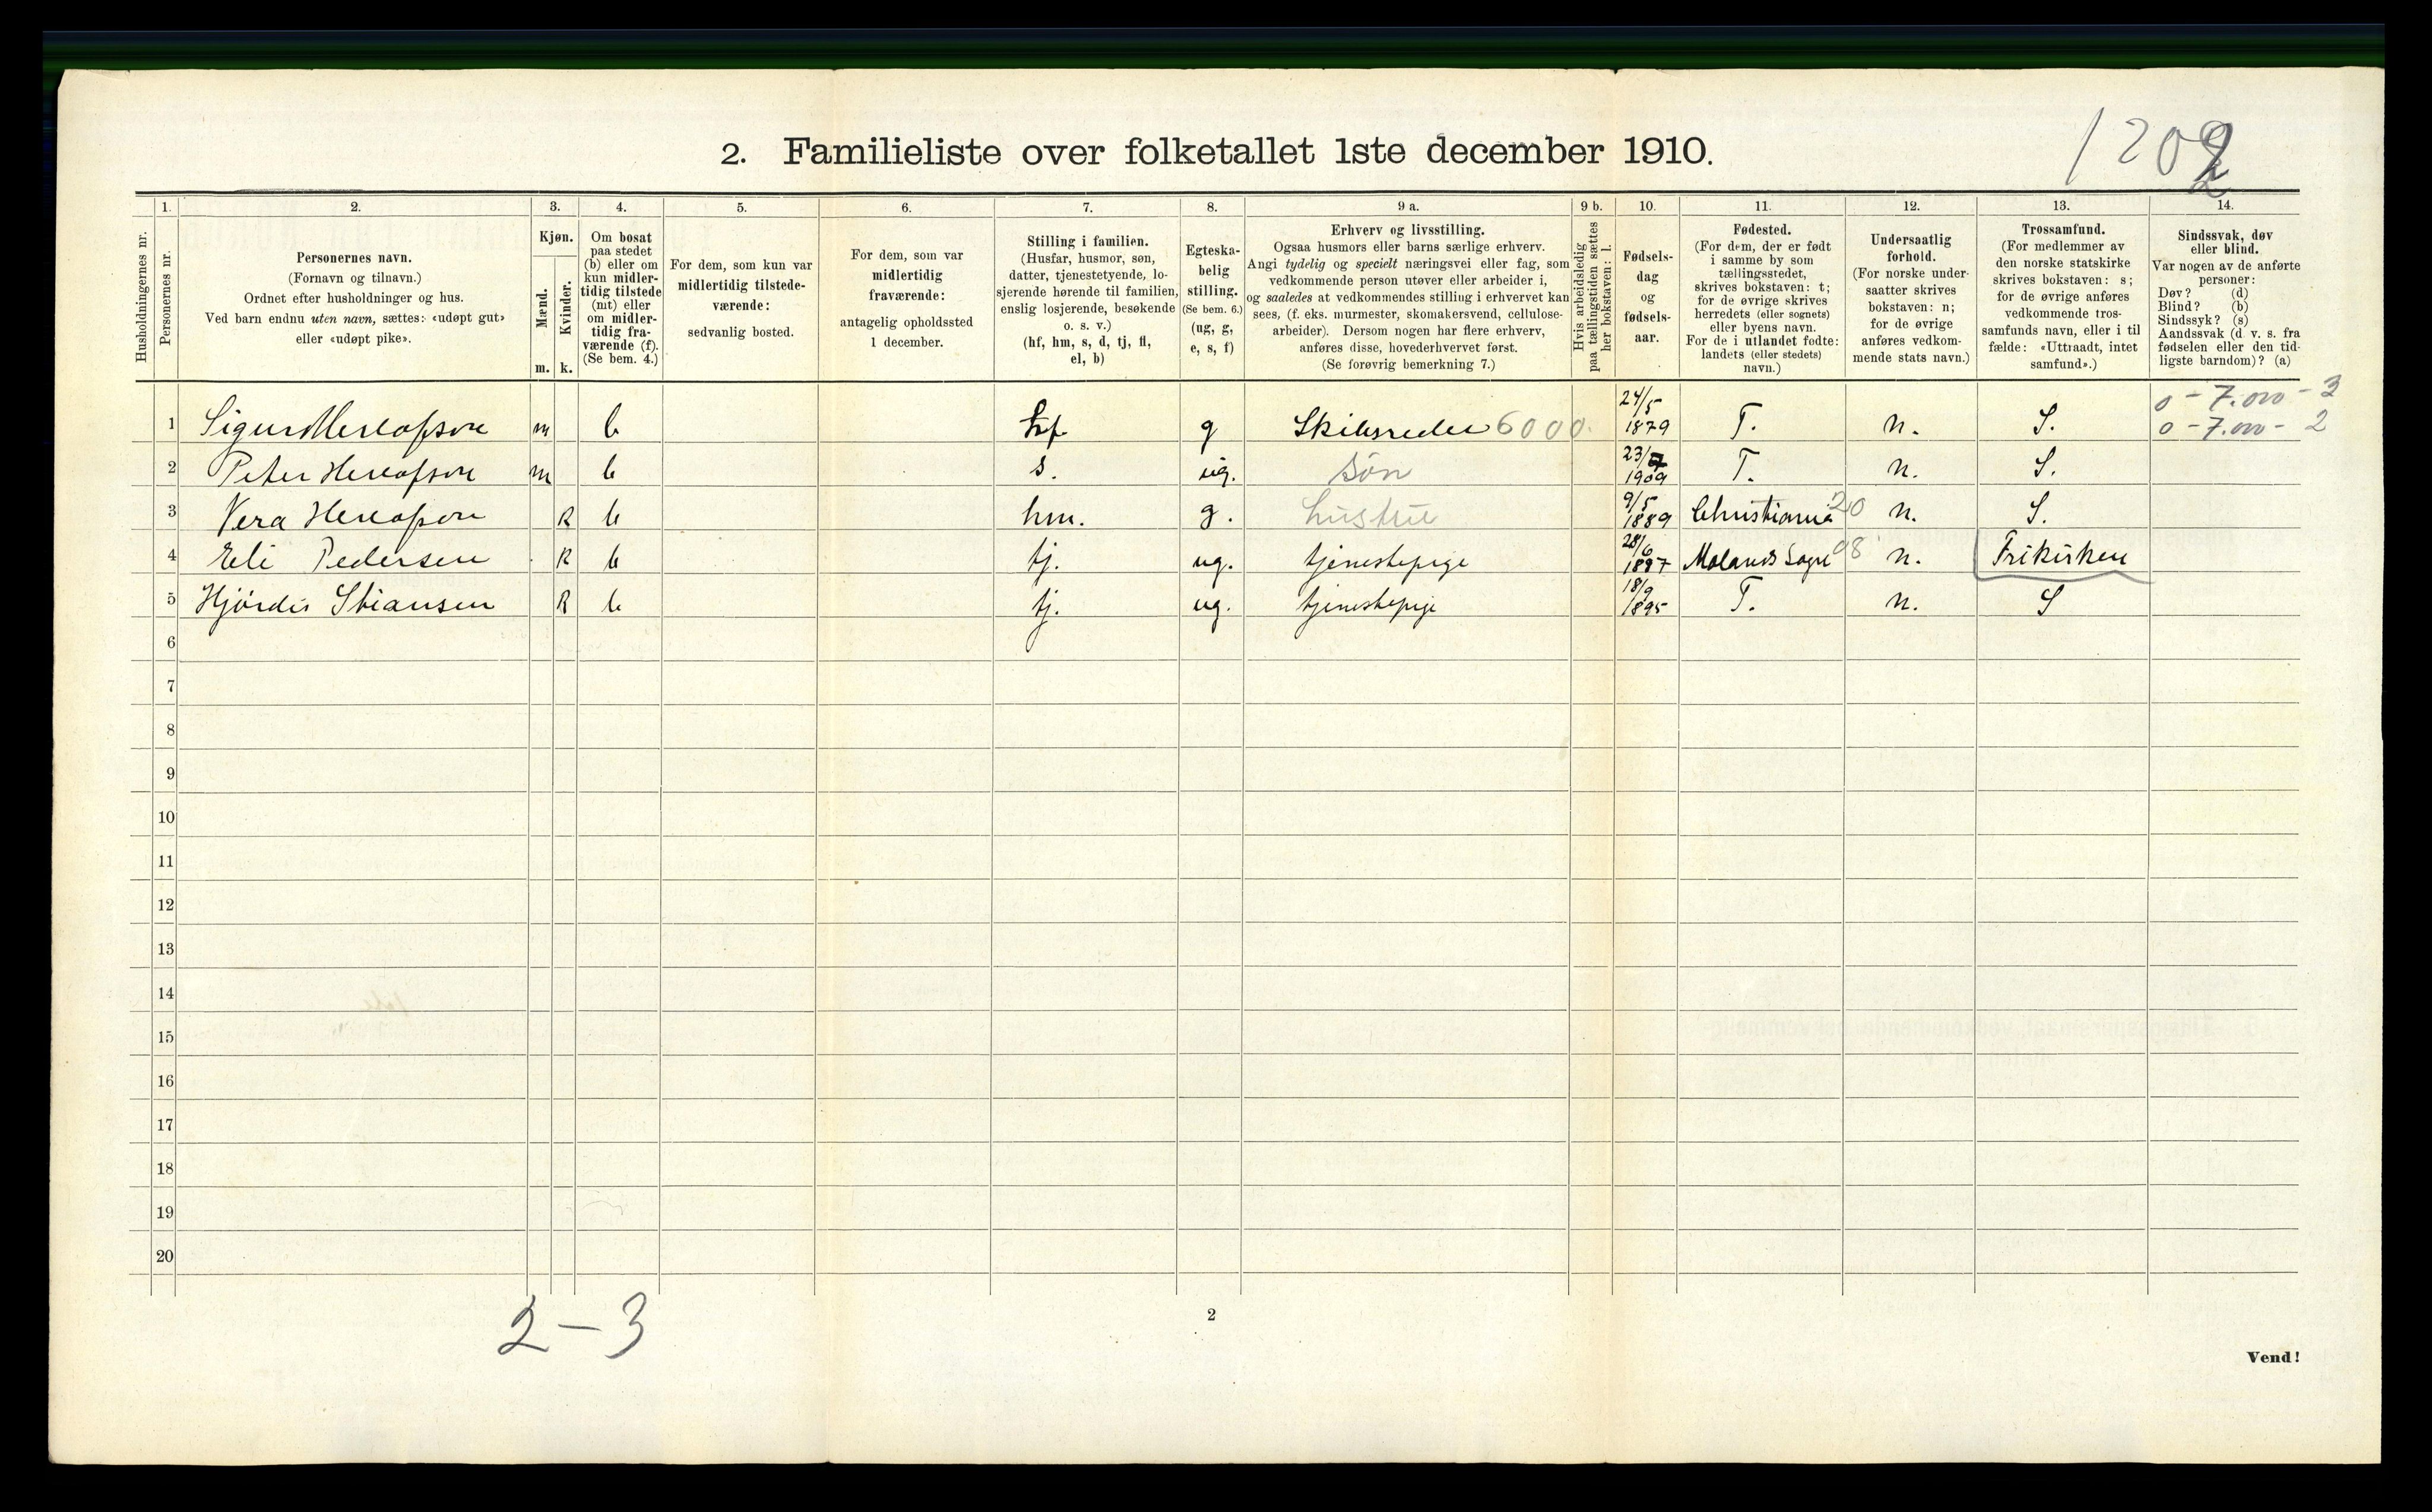 1202
2. Familieliste over folketallet 1ste december 1910.
1. 2. 3. 4. 5. 6. 7. 8. 9 a. 9 b. 10. 11. 12. 13. 14.
Husholdningernes nr.
Personernes nr.
Personernes navn.
(Fornavn og tilnavn.)
Ordnet efter husholdninger og hus.
Ved barn endnu uten navn, sættes: «udøpt gut»
eller «udøpt pike».
Kjøn.
Mænd.
Kvinder.
m. k.
Om bosat
paa stedet
(b) eller om
kun midler-
tidig tilstede
(mt) eller
om midler-
tidig fra-
værende (f).
(Se bem. 4.)
For dem, som kun var
midlertidig tilstede-
værende:
sedvanlig bosted.
For dem, som var
midlertidig
fraværende:
antagelig opholdssted
1 december.
Stilling i familien.
(Husfar, husmor, søn,
datter, tjenestetyende, lo-
sjerende hørende til familien,
enslig losjerende, besøkende
o. s. v.)
(hf, hm, s, d, tj, fl,
el, b)
Egteska-
belig
stilling.
(Se bem. 6.)
(ug, g,
e, s, f)
Erhverv og livsstilling.
Ogsaa husmors eller barns særlige erhverv.
Angi tydelig og specielt næringsvei eller fag, som
vedkommende person utøver eller arbeider i,
og saaledes at vedkommendes stilling i erhvervet kan
sees, (f. eks. murmester, skomakersvend, cellulose-
arbeider). Dersom nogen har flere erhverv,
anføres disse, hovederhvervet først.
(Se forøvrig bemerkning 7.)
Hvis arbeidsledig
paa tællingstiden sættes
her bokstaven: l.
Fødsels-
dag
og
fødsels-
aar.
Fødested.
(For dem, der er født
i samme by som
tællingsstedet,
skrives bokstaven: t;
for de øvrige skrives
herredets (eller sognets)
eller byens navn.
For de i utlandet fødte:
landets (eller stedets)
navn.)
Undersaatlig
forhold.
(For norske under-
saatter skrives
bokstaven: n;
for de øvrige
anføres vedkom-
mende stats navn.)
Trossamfund.
(For medlemmer av
den norske statskirke
skrives bokstaven: s;
for de øvrige anføres
vedkommende tros-
samfunds navn, eller i til
fælde: «Uttraadt, intet
samfund».)
Sindssvak, døv
eller blind.
Var nogen av de anførte
personer:
Døv? (d)
Blind? (b)
Sindssyk? (s)
Aandssvak (d. v. s. fra
fødselen eller den tid-
ligste barndom)? (a)
0 - 7.000 - 3
1 Sigurd Herlofson m b hf. g Skibsreder 6000. 24/5 1879 T. n. S. 0 - 7.000 - 2
2 Peter Herlofson m b s. ug. søn 23/7 1909 T. n. S.
3 Vera Herlofson k b hm. g. hustru 9/5 1889 Christiania 20 n. S.
4 Eli Pedersen k b tj. ug. tjenestepige 28/6 1887 Molands Sogn 08 n. Frikirken
5 Hjördis Stiansen k b tj. ug. tjenestepige 18/9 1895 T. n. S
6
7
8
9
10
11
12
13
14
15
16
17
18
19
20
2 - 3
2
Vend!